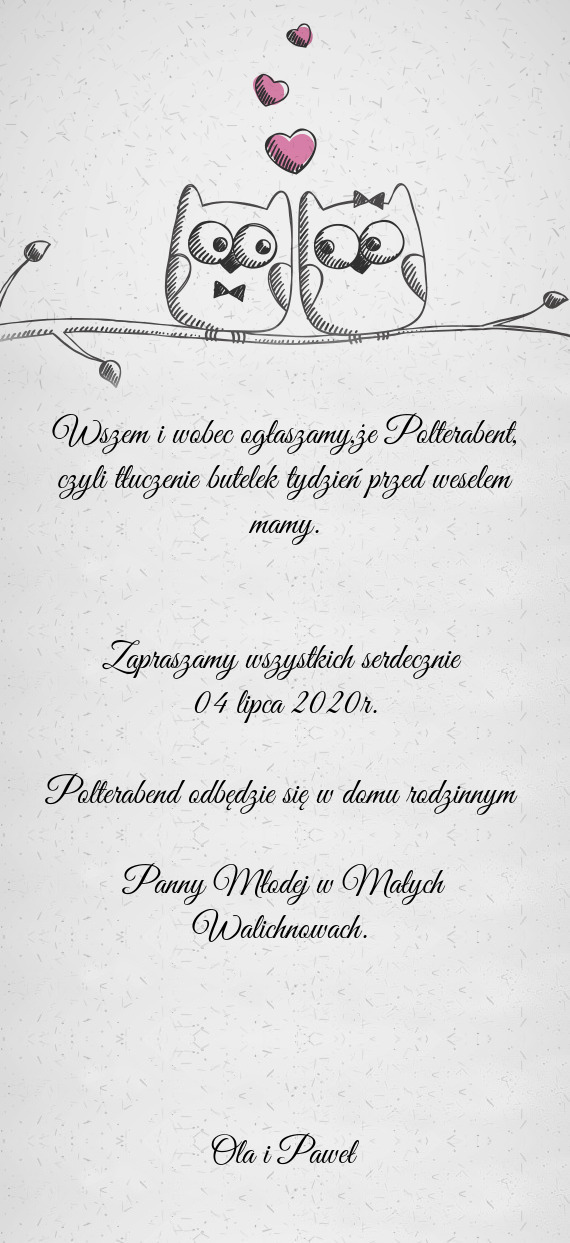 Wszem i wobec ogłaszamy,że Polterabent,
czyli tłuczenie butelek tydzień przed weselem
mamy.
Zapraszamy wszystkich serdecznie
04 lipca 2020r.
Polterabend odbędzie się w domu rodzinnym
Panny Młodej w Małych
Walichnowach.
Ola i Paweł